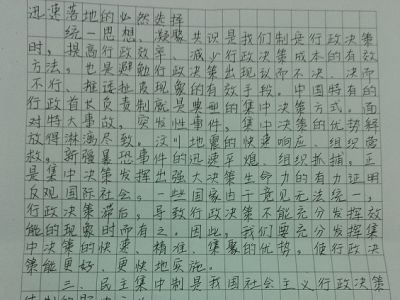 迅速落地的必然选择
统一思想、凝聚共识是我们制定行政决策
时，提高行政效率、减少行政决策成本的有效
方法，也是避免行政决策出现议而不决、决而
不行、推诿扯皮现象的有效手段。中国特有的
行政首长负责制就是典型的集中决策方式。面
对特大事故，突发性事件，集中决策的优势解
放得淋漓尽致。汶川地震的快速响应、组织营
救。新疆暴恐事件的迅速平熄、组织抓捕，正
是集中决策发挥出强大决策生命力的有力证明
反观国际社会。一些国家由于意见无法统一，
行政决策滞后，导致行政决策不能充分发挥效
能的现象时而有之。因此，我们要充分发挥集
中决策的快速、精准、集聚的优势，使行政决
策能更好、更快地实施。
三、民主集中制是我国社会主义行政决策